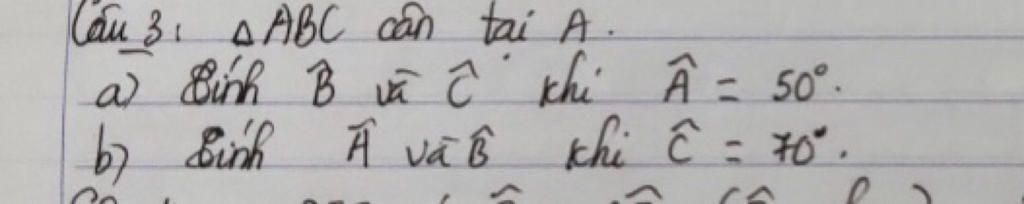 Câu 3: △ABC cân tại A.
a) Tính B̂ và Ĉ khi Â = 50°.
b) Tính Â và B̂ khi Ĉ = 70°.